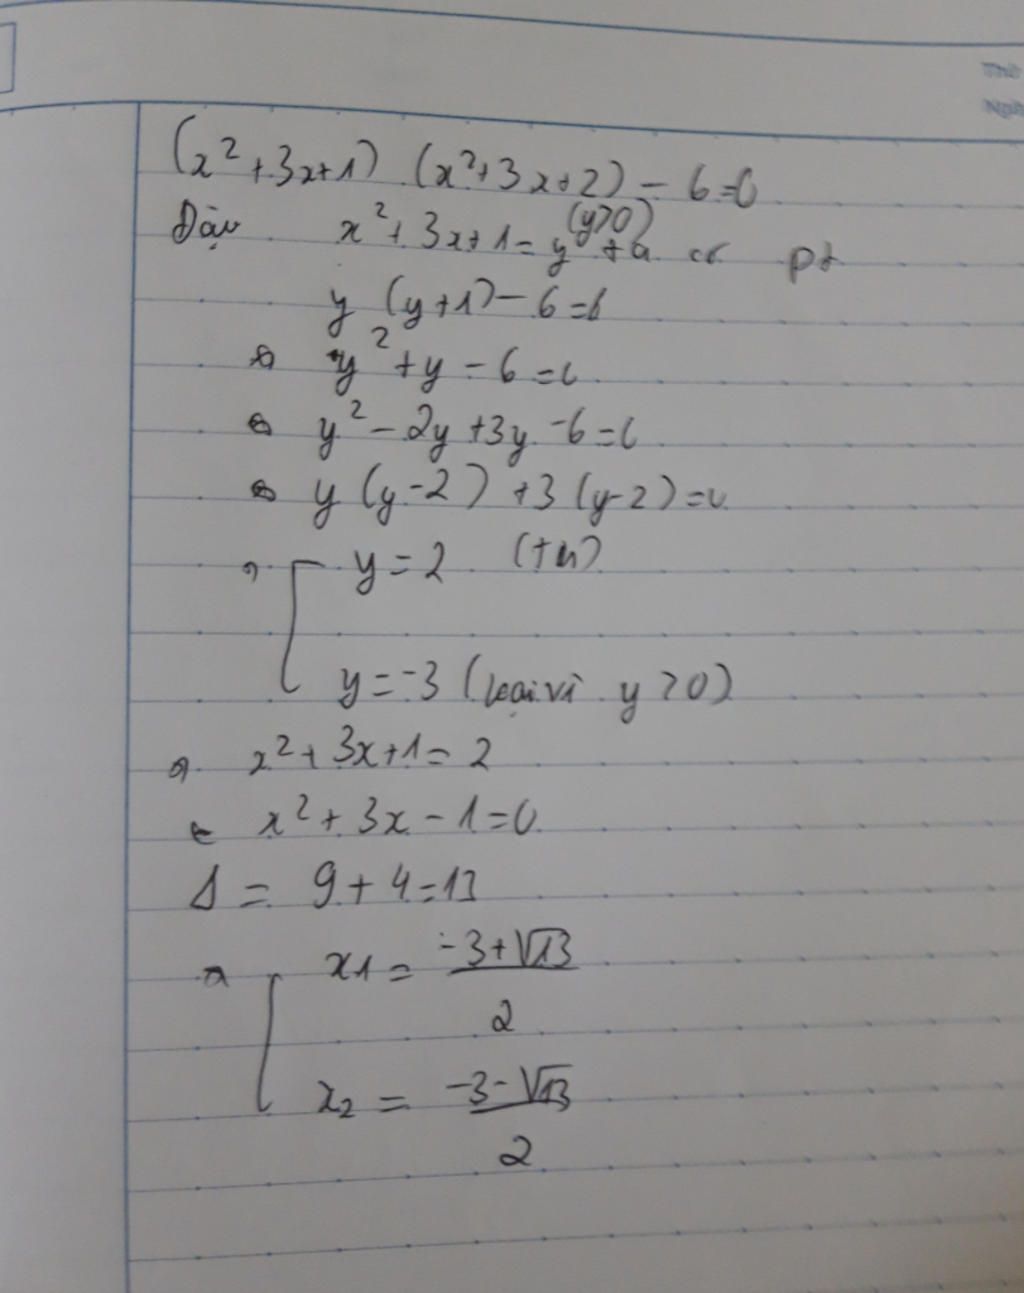 Thứ
Ngà
(x²+3x+1) (x²+3x+2) - 6=0
Đặt x²+3x+1=y (y>0) ta có pt
y (y+1)-6=0
⇔ y²+y-6=0
⇔ y²-2y+3y-6=0
⇔ y(y-2)+3(y-2)=0
⇒ [ y=2 (tm)
y=-3 (loại vì y>0)
⇒ x²+3x+1=2
x²+3x-1=0
Δ = 9+4=13
⇒ [ x1 = (-3+√13)/2
x₂ = (-3-√13)/2